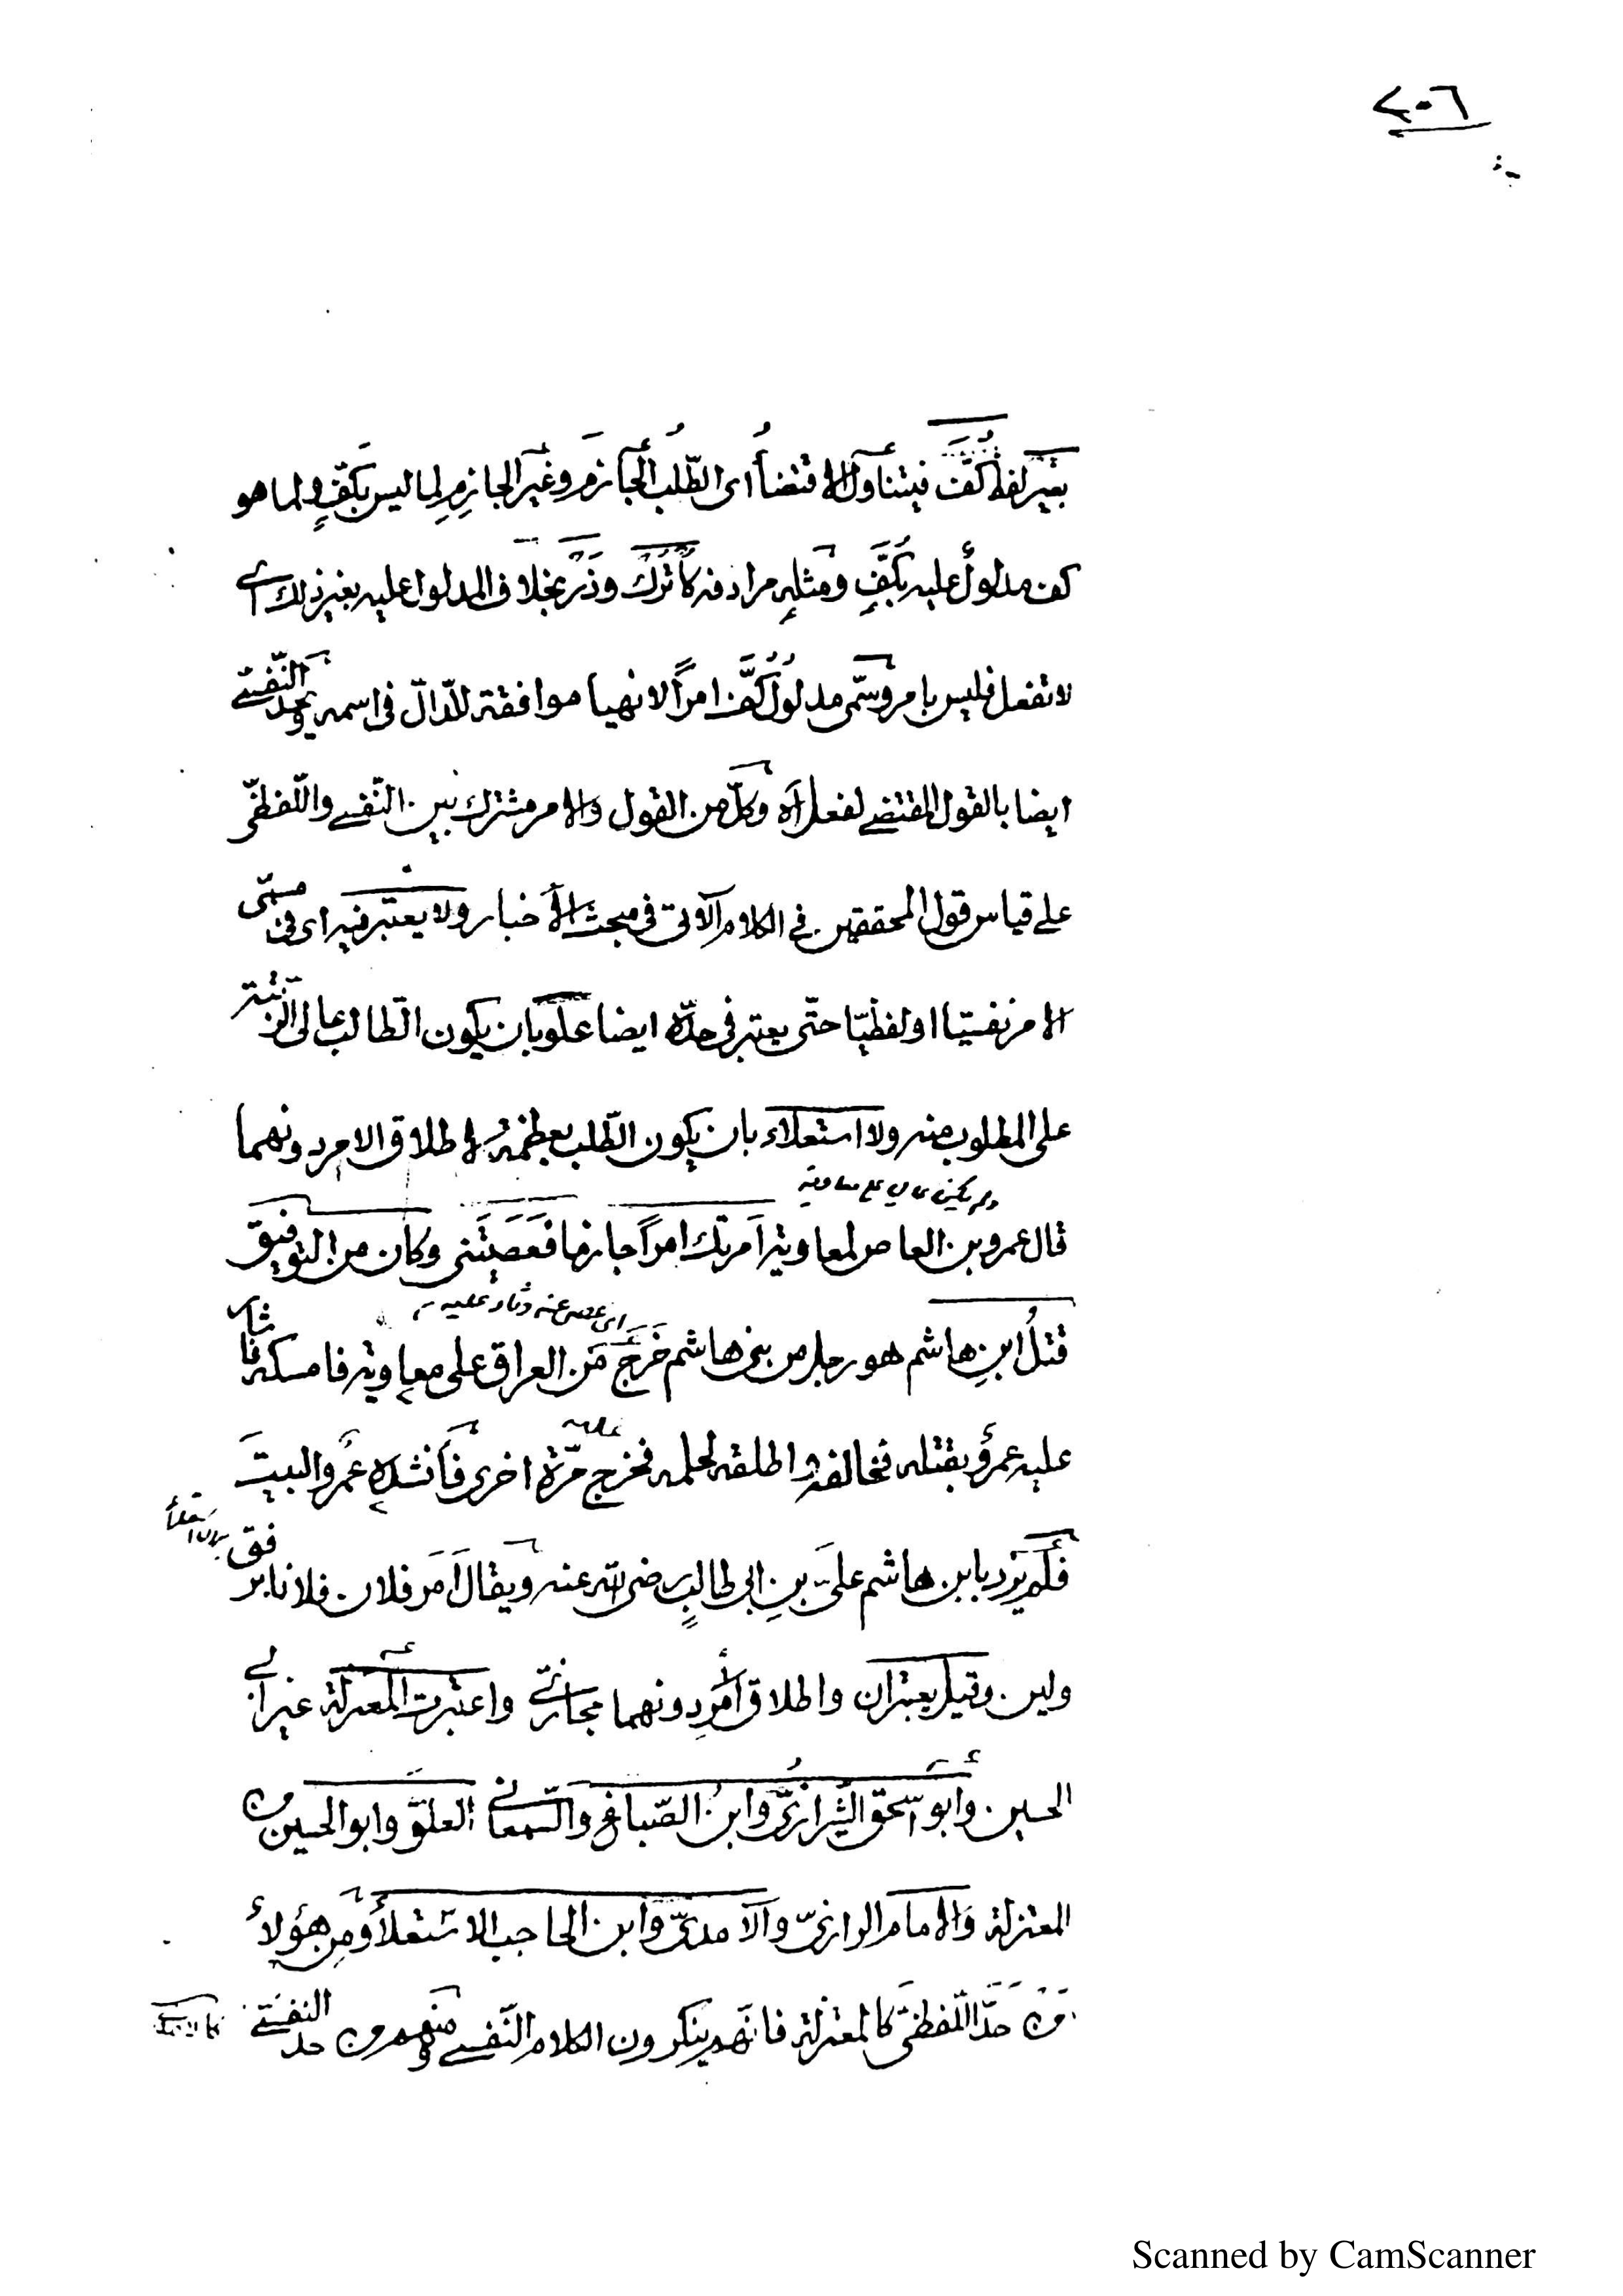 ٢٠٦
بغير لفظ كُفَّ فيتناول الاقتضاءُ اى الطّلبُ الجازمَ وغيرَ الجازمِ لِما ليس بكفٍّ ولما هو
كف مدلولٌ عليه بكُفَّ ومثلِه مرادفه كاتْرُكْ وذَرْ بخلاف المدلول عليه بغير ذلك اى
لا تفعل فليس بامر وسمّى مدلولُ كُفَّ امراً لا نهيا موافقة للدّالّ فى اسمه ويحدّ النّفسى
ايضا بالقول المقتضى لفعل آه وكلّ من القول والامر مشترك بين النّفسى واللّفظىّ
على قياس قول المحققين فى الكلام الآتى فى مبحث الأخبار ولا يعتبر فيه اى فى مسمّى
الامر نفسيّا او لفظيّا حتّى يعتبر فى حدّه ايضا علوّ بان يكون الطّالب عالى الرّتبة
على المطلوب منه ولا استعلاء بان يكون الطّلب بعظمة لاطلاق الامر دونهما
ولم يكن على معاوية
قال عمرو بن العاص لمعاوية اَمرتك امراً جازما فَعَصَيْتَنى وكان من التوفيق
اى عصى عنه عليه
قتلُ ابنِ هاشم هو رجل من بنى هاشم خَرَجَ مَن العراق على معاوية فامسكه فاشار
عليه عمرٌو بقتله فخالفه واطلقه لحلمه فخرج عليه مرّة اخرى فأنشده عمرٌو البيتَ
فلم يُرد بابن هاشم علىَّ بنِ ابى طالبٍ رضى الله عنه ويقال اَمَر فلان فلانا برفق
ولين وقيل يعتبران واطلاق الأمرِ دونهما مجازىّ واعتبرت المعتزلة غير ابى
الحسين وأبو اسحق الشّيرازىُّ وابن الصّباغ والسّمعانى العلوَّ وابو الحسين من
المعتزلة والامام الرازىّ والآمدىّ وابن الحاجب الاستعلاءَ ومن هؤلاءِ
من حَدَّ اللّفظىّ كالمعتزلة فانّهم ينكرون الكلام النّفسى ومنهم من حد النفسىّ كالآمدى
Scanned by CamScanner